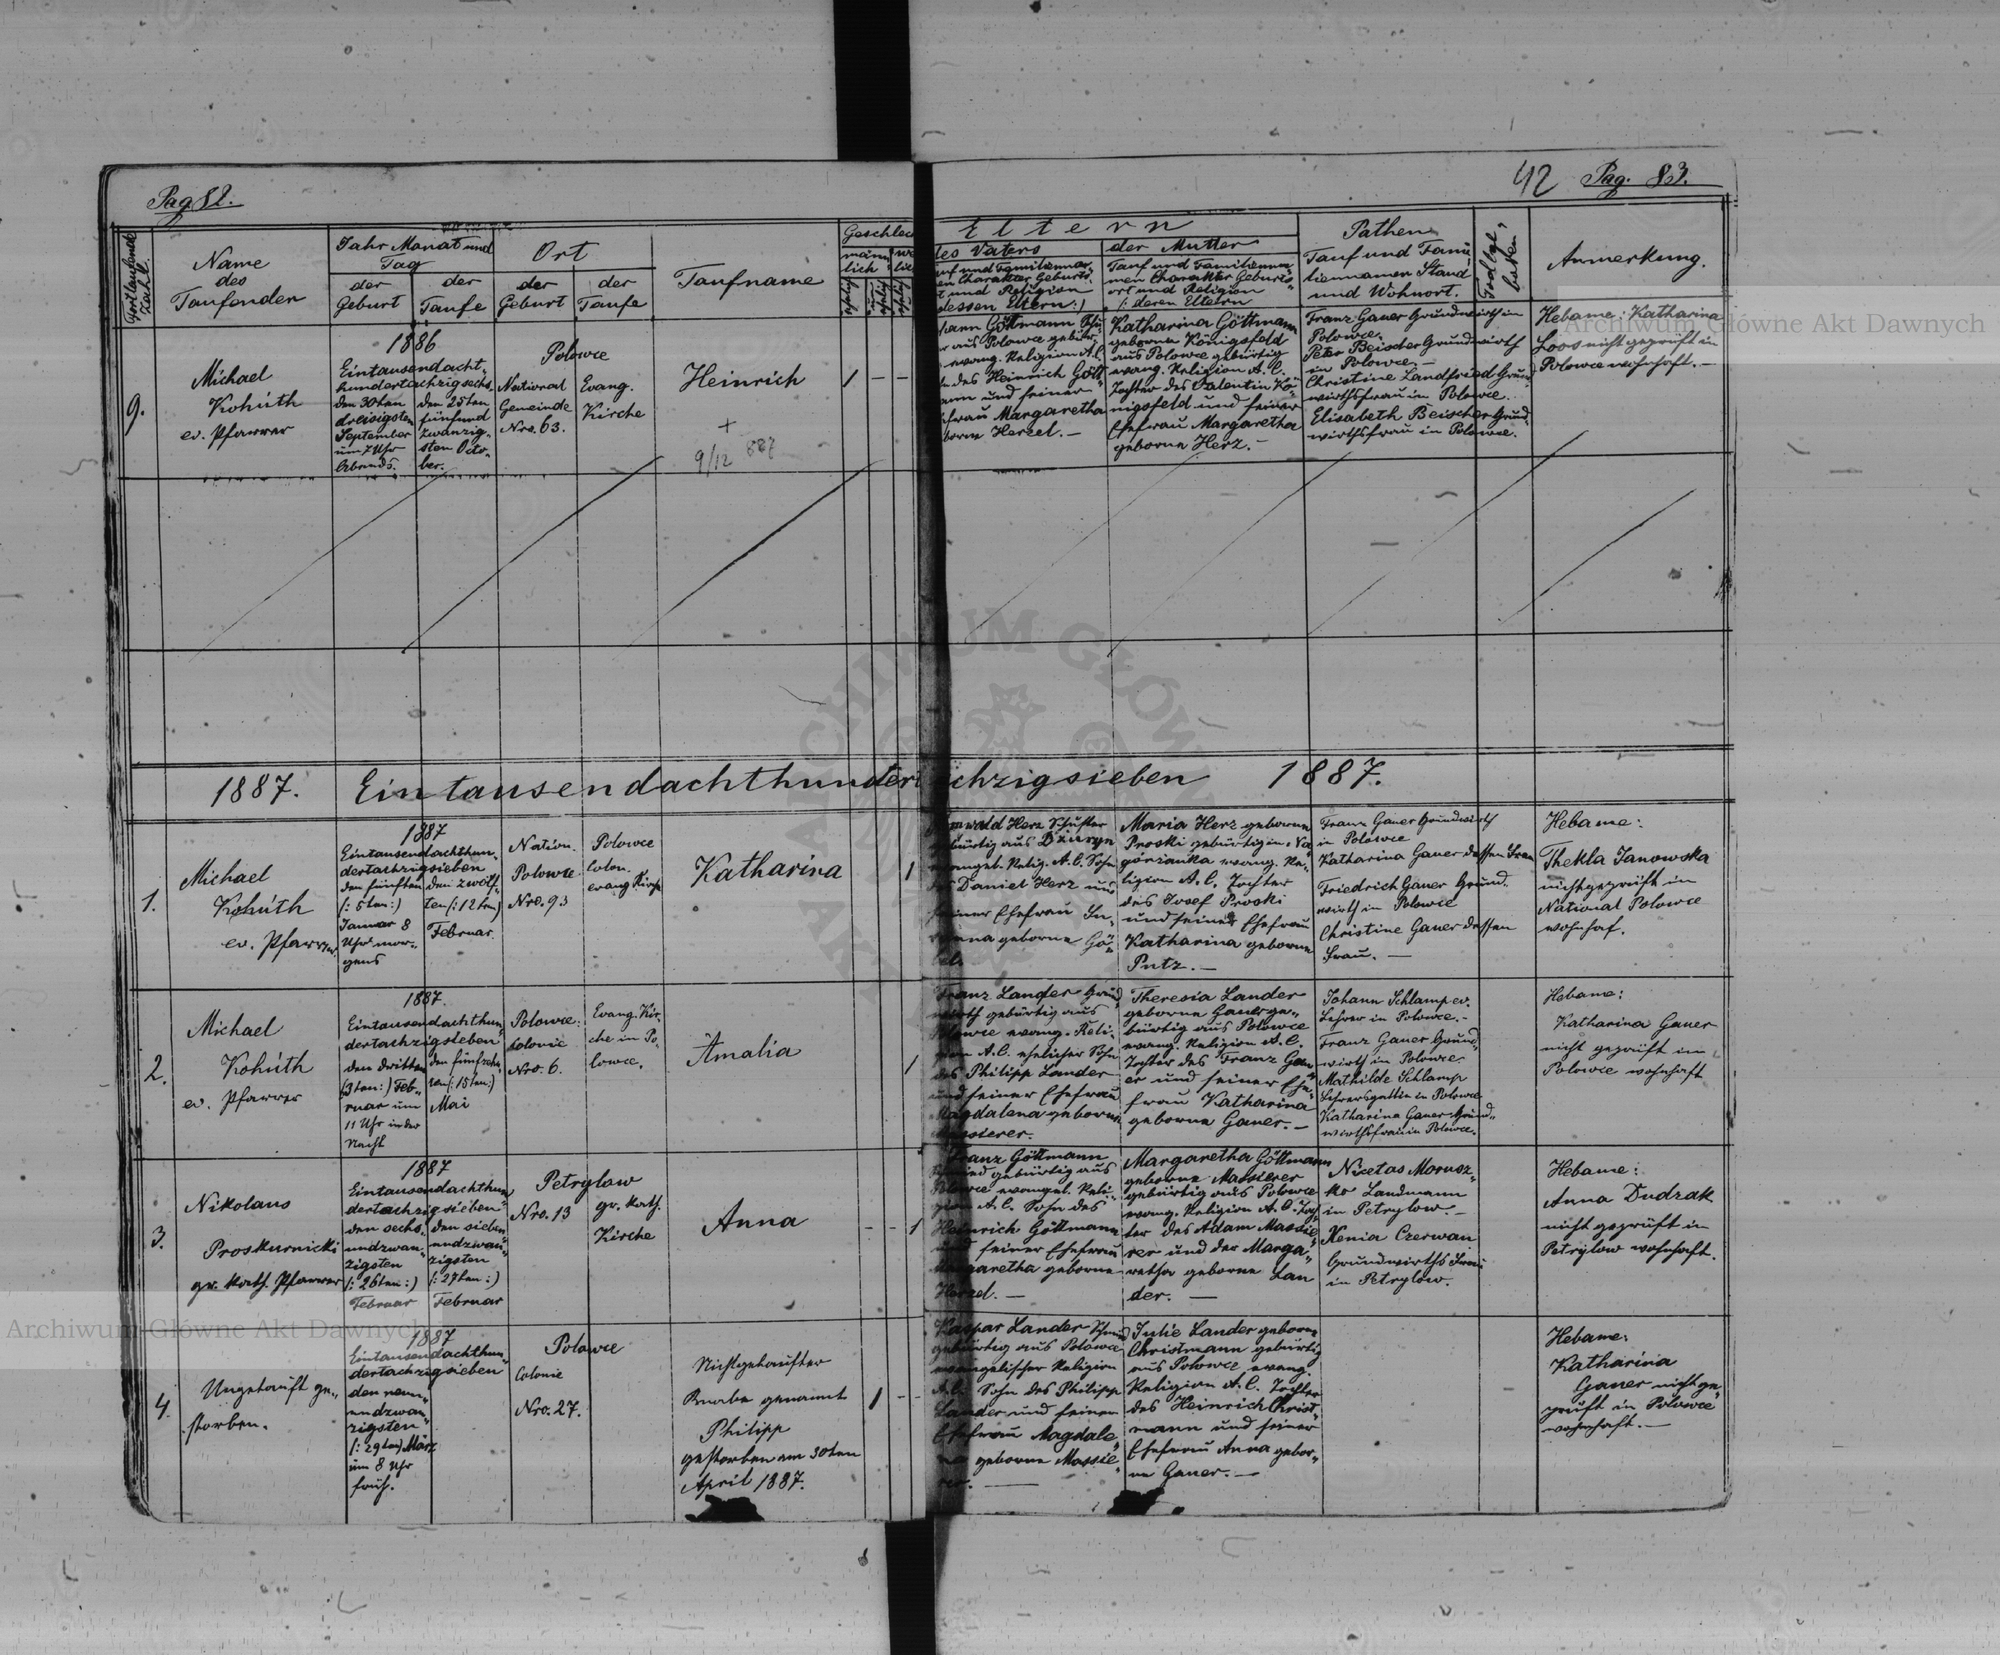 Pag 82.
42 Pag. 83.
Fortlaufende Zahl.
Name
des
Taufenden
Jahr Monat und
Tag
der
Geburt
der
Taufe
Ort
der
Geburt
der
Taufe
Taufname
Geschlec
männ
lich
Eltern
des Vaters
auf und Familienna
en Charakter Geburts
t und Religion
dessen Eltern:)
der Mutter
Tauf und Familienna
men Charakter Geburts
ort und Religion
/: deren Eltern
Pathen
Tauf und Fami
liennamen Stand
und Wohnort.
Todtge,
buten
Anmerkung.
9.
Michael
Kohúth
ev. Pfarrer
1886
Eintausendacht,
hundertachzigsechs.
den 30ten
dreisigsten
September
um 7 Uhr
Abends.
den 25ten
fünfund
zwanzig,
sten Octo,
ber.
Polowce
National
Gemeinde
Nro. 63.
Evang.
Kirche
Heinrich
+
9/12 887
1 — —
hann Göttmann
aus Polowce gebür
evang. Religion A. C.
des Heinrich Gött
ann und seiner
frau Margaretha
borne Herzel. —
Katharina Göttmann
geborne Königsfeld
aus Polowce gebürtig
evang. Religion A. C.
Tochter des Valentin Kö
nigsfeld und seiner
Ehefrau Margaretha
geborne Herz. —
Franz Gauer Grundwirth in
Polowce.
Peter Beischer Grundwirth
in Polowce. —
Christine Landfried Grund
wirthsfrau in Polowce.
Elisabeth Beischer Grund
wirthsfrau in Polowce.
Hebame: Katharina
Loos nicht geprüft in
Polowce wohnhaft. —
1887. Eintausendachthundertachzigsieben 1887.
1.
Michael
Kohúth
ev. Pfarrer
1887
Eintausendachthun,
dertachzigsieben
den fünften
(: 5ten :)
Januar 8
Uhr mor,
gens
den zwölf,
ten (: 12ten)
Februar
Nation.
Polowce
Nro. 93
Polowce
colon.
evang Kirche
Katharina
1
wald Herz Schuster
gebürtig aus Dżuryn
evangel. Relig. A. C. Sohn
des Daniel Herz und
seiner Ehefrau
geborne Gö
bel.
Maria Herz geborne
Proski gebürtig in Na
górzanka evang. Re,
ligion A. C. Tochter
des Josef Proski
und seiner Ehefrau
Katharina geborne
Putz. —
Franz Gauer Grundwirth
in Polowce
Katharina Gauer dessen Frau
Friedrich Gauer Grund,
wirth in Polowce
Christine Gauer dessen
Frau. —
Hebame:
Thekla Janowska
nicht geprüft in
National Polowce
wohnhaf.
2.
Michael
Kohúth
ev. Pfarrer
1887.
Eintausendachthun,
dertachzigsieben
den dritten
(3ten:) Feb,
ruar um
11 Uhr in der
Nacht
den fünfzehn,
ten (: 15ten:)
Mai
Polowce:
Colonie
Nro. 6.
Evang. Kir,
che in Po,
lowce.
Amalia
1
Franz Lander Grund
wirth gebürtig aus
Polowce evang. Reli,
gion A. C. ehelicher Sohn
des Philipp Lander
und seiner Ehefrau
Magdalena geborne
Massierer.
Theresia Lander
geborne Gauer ge,
bürtig aus Polowce
evang. Religion A. C.
Tochter des Franz Gau
er und seiner Ehe,
frau Katharina
geborne Gauer. —
Johann Schlamp ev.
Lehrer in Polowce. —
Franz Gauer Grund,
wirth in Polowce.
Mathilde Schlamp
Lehrersgattin in Polowce
Katharina Gauer Grund,
wirthsfrau in Polowce.
Hebame:
Katharina Gauer
nicht geprüft in
Polowce wohnhaft
3.
Nikolaus
Proskurnicki
gr. kath. Pfarrer
1887
Eintausendachthun,
dertachzigsieben
den sechs,
undzwan,
zigsten
(: 26ten :)
Februar
den sieben
undzwan,
zigsten
(: 27ten :)
Februar
Petrylow
Nro. 13
gr. kath.
Kirche
Anna
- - 1
Franz Göttmann
Schmied gebürtig aus
Polowce evangel. Reli,
gion A. C. Sohn des
Heinrich Göttmann
und seiner Ehefrau
Margaretha geborne
Herzel. —
Margaretha Göttmann
geborne Massierer
gebürtig aus Polowce
evang. Religion A. C. Toch
ter des Adam Massie,
rer und der Marga,
retha geborne Lan
der. —
Nicetas Morusz,
ko Landmann
in Petrylow. —
Xenia Czerwan
Grundwirths Frau
in Petrylow.
Hebame:
Anna Dudzak
nicht geprüft in
Petrylow wohnhaft.
4.
Ungetauft ge,
storben.
1887
Eintausendachthun,
dertachzigsieben
den neun,
undzwan,
zigsten
(: 29ten) März
um 8 Uhr
früh.
Polowce
Colonie
Nro. 27.
Nichtgetaufter
Knabe genannt
Philipp
gestorben am 30ten
April 1887.
1 - -
Kaspar Lander Schmied
gebürtig aus Polowce
evangelischer Religion
A. C. Sohn des Philipp
Lander und seiner
Ehefrau Magdale,
na geborne Massie,
rer. —
Julie Lander geborne
Christmann gebürtig
aus Polowce evang.
Religion A. C. Tochter
des Heinrich Christ,
mann und seiner
Ehefrau Anna gebor,
ne Gauer. —
Hebame:
Katharina
Gauer nicht ge,
prüft in Polowce
wohnhaft. —
Archiwum Główne Akt Dawnych
Archiwum Główne Akt Dawnych